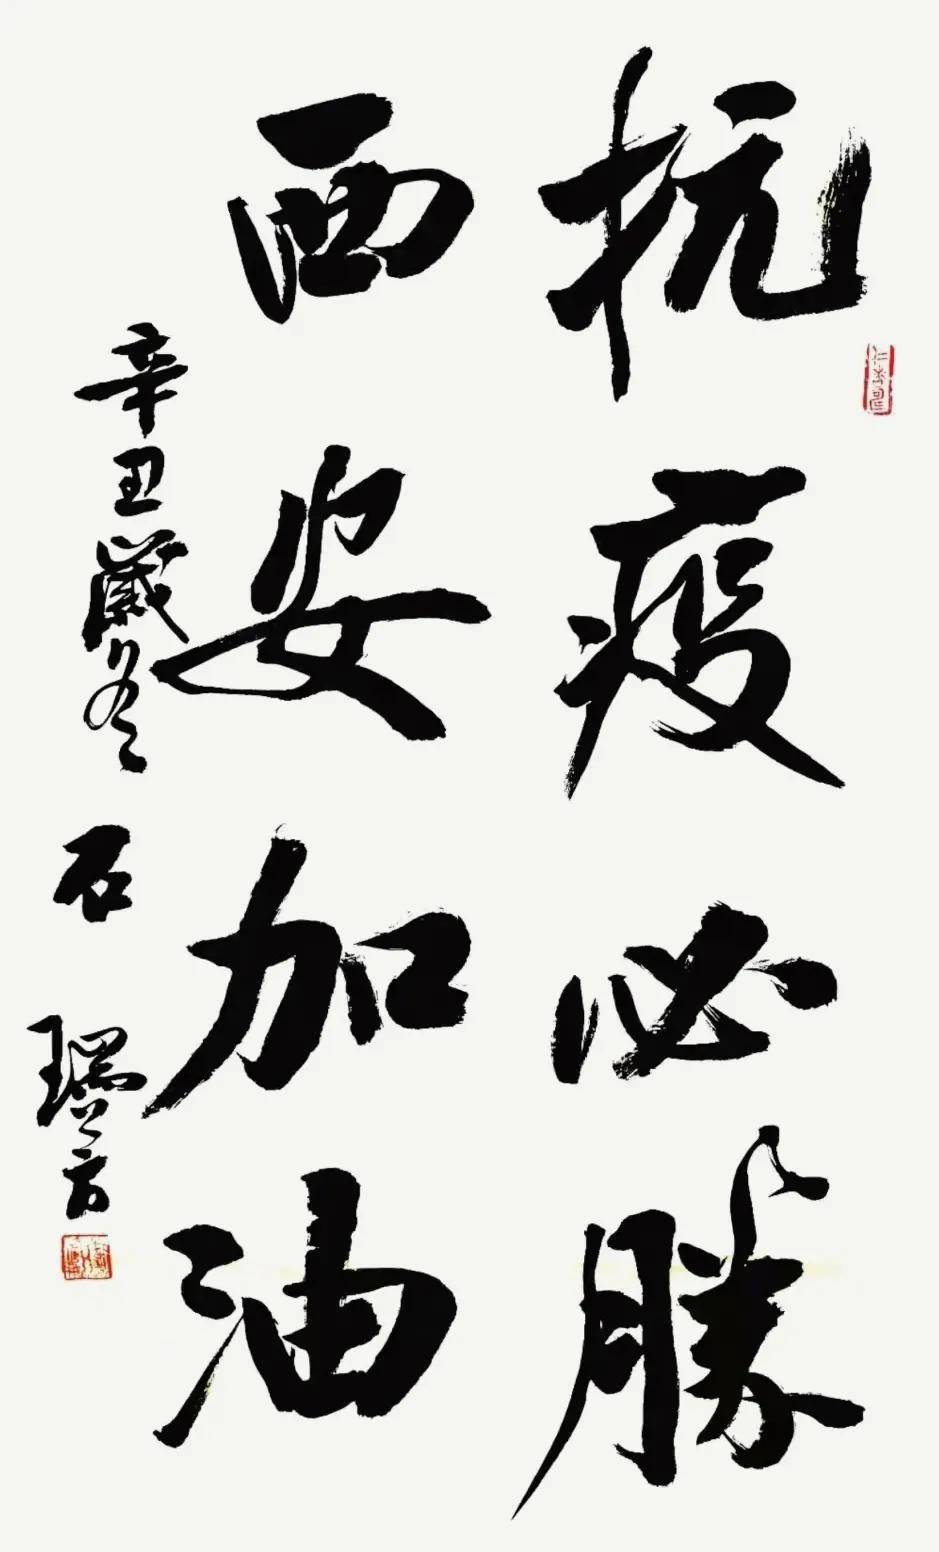 抗疫必勝
西安加油
辛丑歲冬 石瑞芳